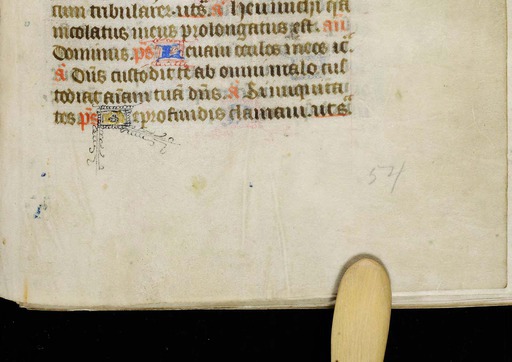 cum tribularer. uts. a Heu michi q̄a
incolatus meus prolongatus est. an
Dominus. ps Leuam oculos meos ic̄.
a Dn̄s custodit te ab omni malo cus
todiat aīam tuā dn̄s. a Si iniquita
tes ps De profundis clamaui. uts.
54